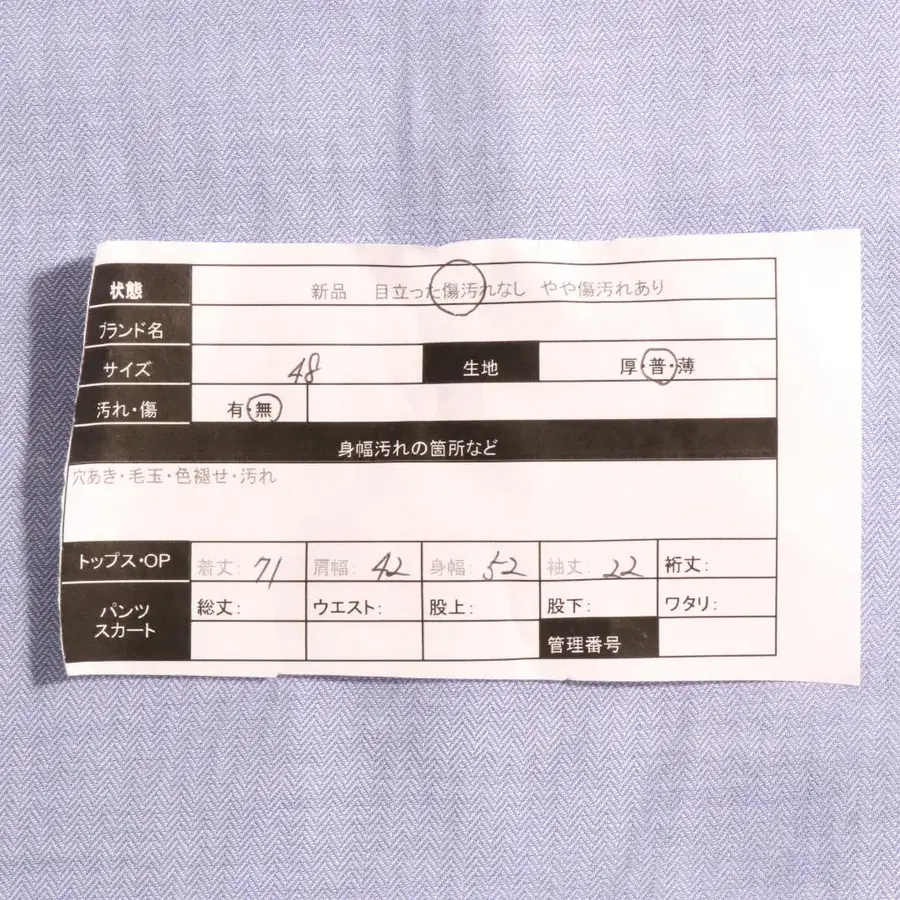 状態 新品 目立った傷汚れなし やや傷汚れあり
ブランド名
サイズ 48 生地 厚・普・薄
汚れ・傷 有・無
身幅汚れの箇所など
穴あき・毛玉・色褪せ・汚れ
トップス・OP 着丈: 71 肩幅: 42 身幅: 52 袖丈: 22 裄丈:
パンツ スカート 総丈: ウエスト: 股上: 股下: ワタリ:
管理番号